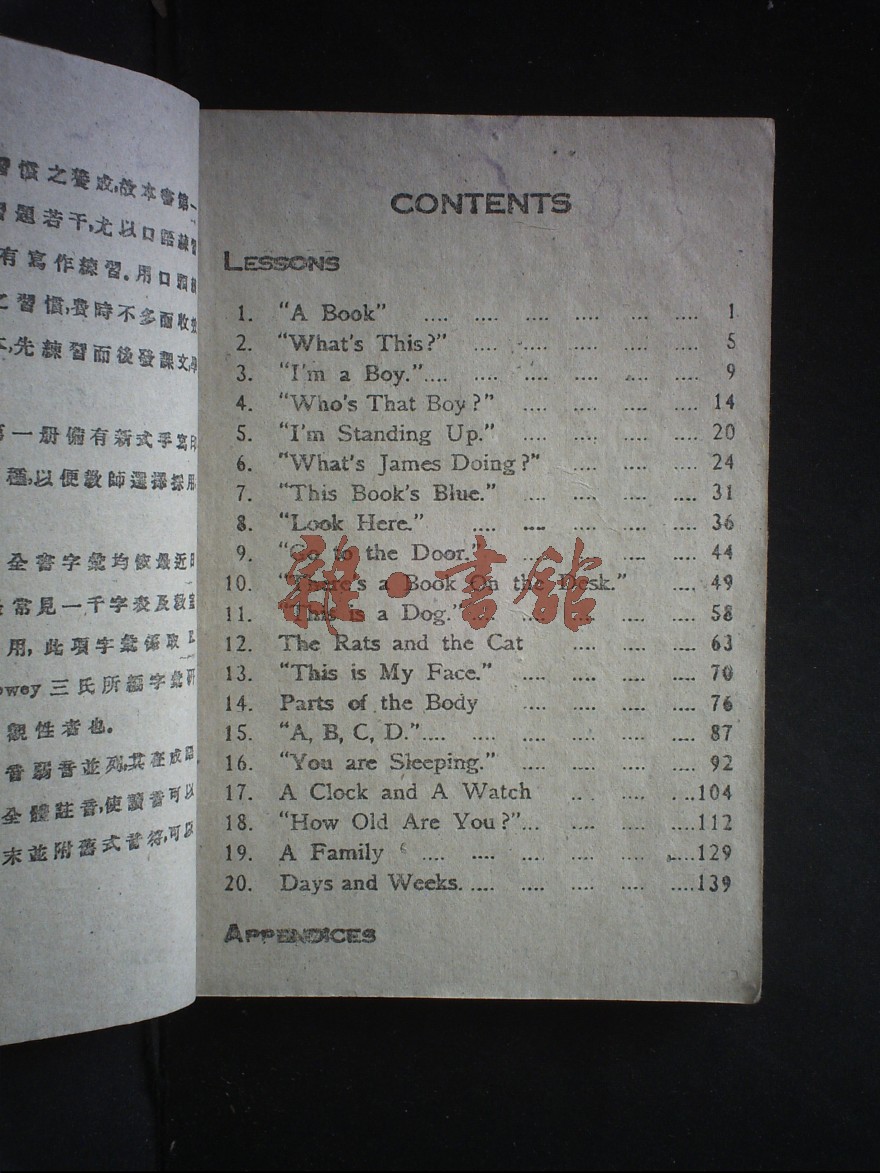 習慣之養成,故本書第一
習題若干,尤以口語練習
有寫作練習。用口頭
之習慣,費時不多而收效
本,先練習而後發課文,學
第一册備有新式手寫印
種,以便敎師選擇採用
全書字彙均依最近
常見一千字表及敎室
用,此項字彙係取
owey三氏所編字彙研
觀性者也。
音弱音並列,其在成
全體註音,使讀音可以
末並附舊式音符,可以
CONTENTS
LESSONS
1. "A Book" .... .... .... .... .... .... 1
2. "What's This?" .... .... .... .... .... 5
3. "I'm a Boy.".... .... .... .... .... .... 9
4. "Who's That Boy?" .... .... .... .... 14
5. "I'm Standing Up." .... .... .... .... 20
6. "What's James Doing?" .... .... .... 24
7. "This Book's Blue." .... .... .... .... 31
8. "Look Here." .... .... .... .... .... 36
9. "Go to the Door." .... .... .... .... 44
10. "There's a Book On the Desk." .... .... 49
11. "This is a Dog." .... .... .... .... .... 58
12. The Rats and the Cat .... .... .... 63
13. "This is My Face." .... .... .... .... 70
14. Parts of the Body .... .... .... .... 76
15. "A, B, C, D.".... .... .... .... .... .... 87
16. "You are Sleeping." .... .... .... .... 92
17. A Clock and A Watch .... .... ....104
18. "How Old Are You?".... .... .... ....112
19. A Family .... .... .... .... .... ....129
20. Days and Weeks. .... .... .... .... ....139
APPENDICES
雜·書館